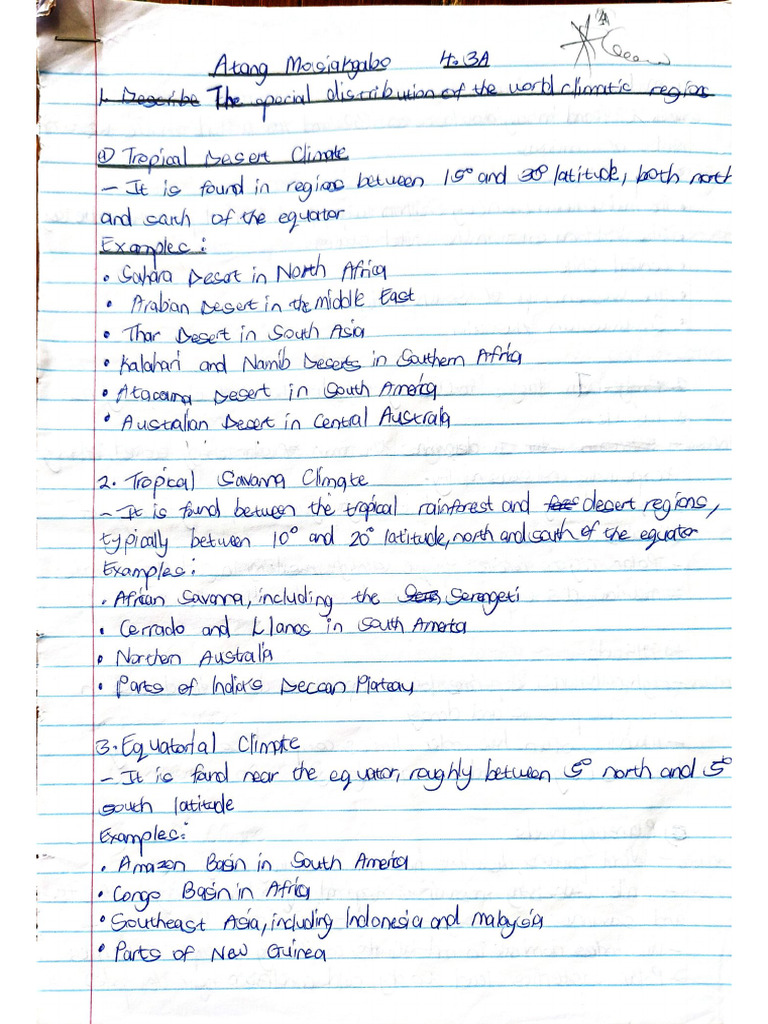 Atang Mosiakgabo 4.3A
1. Describe The special distribution of the world climatic region
① Tropical Desert Climate
- It is found in regions between 15° and 30° latitude, both north
and south of the equator
Examples:
• Sahara Desert in North Africa
• Arabian Desert in the middle East
• Thar Desert in South Asia
• Kalahari and Namib Deserts in Southern Africa
• Atacama Desert in South America
• Australian Desert in Central Australia
2. Tropical Savanna Climate
- It is found between the tropical rainforest and desert regions,
typically between 10° and 20° latitude, north and south of the equator
Examples:
• African Savanna, including the Serengeti
• Cerrado and Llanos in South America
• Northern Australia
• Parts of India's Deccan Plateau
3. Equatorial Climate
- It is found near the equator, roughly between 5° north and 5°
south latitude
Examples:
• Amazon Basin in South America
• Congo Basin in Africa
• Southeast Asia, including Indonesia and malaysia
• Parts of New Guinea